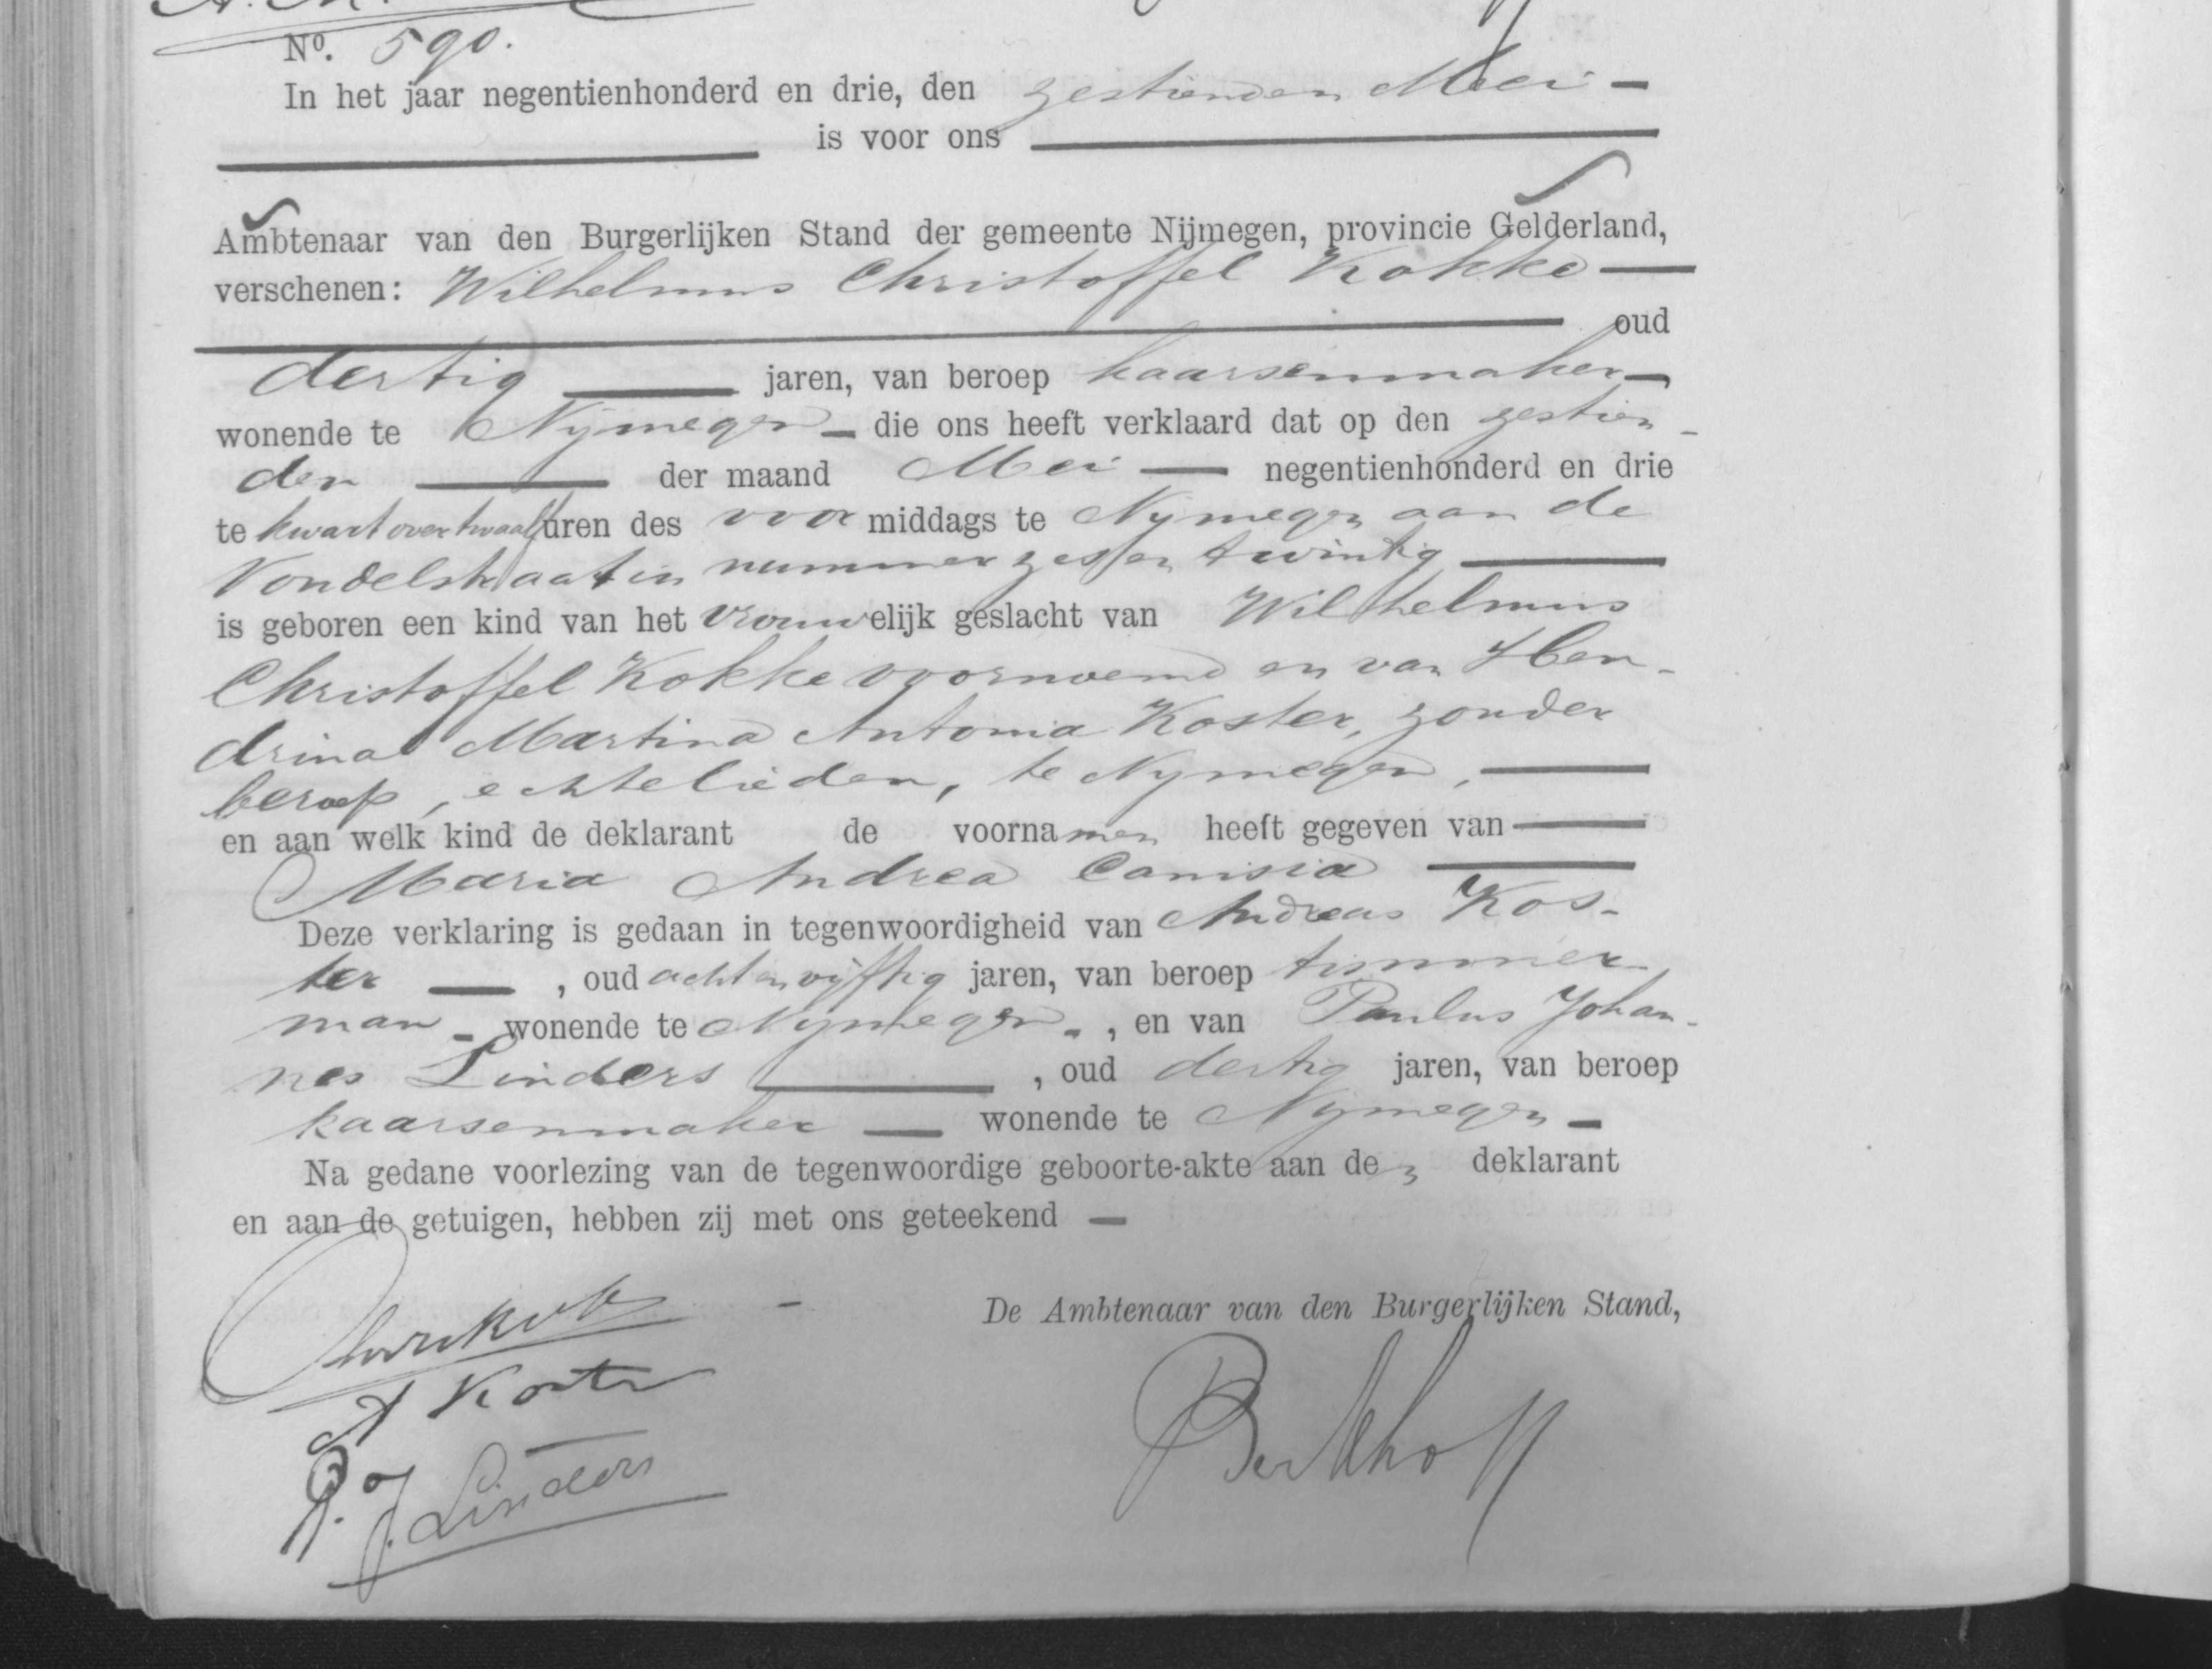 Nº. 590.
In het jaar negentienhonderd en drie, den zestienden Mei —
is voor ons
Ambtenaar van den Burgerlijken Stand der gemeente Nijmegen, provincie Gelderland,
verschenen: Wilhelmus Christoffel Kokke —
oud
dertig — jaren, van beroep kaarsenmaker —
wonende te Nijmegen — die ons heeft verklaard dat op den zestien-
den — der maand Mei — negentienhonderd en drie
te kwart over twaalf uren des voormiddags te Nijmegen aan de
Vondelstraat in nummer zes en twintig —
is geboren een kind van het vrouwelijk geslacht van Wilhelmus
Christoffel Kokke voornoemd en van Hen-
drina Martina Antonia Koster, zonder
beroep, echtelieden, te Nijmegen, —
en aan welk kind de deklarant de voornamen heeft gegeven van —
Maria Andrea Canisia —
Deze verklaring is gedaan in tegenwoordigheid van Andreas Kos-
ter — , oud acht en vijftig jaren, van beroep timmer-
man — wonende te Nijmegen — , en van Paulus Johan-
nes Linders — , oud dertig jaren, van beroep
kaarsenmaker — wonende te Nijmegen —
Na gedane voorlezing van de tegenwoordige geboorte-akte aan den deklarant
en aan de getuigen, hebben zij met ons geteekend —
De Ambtenaar van den Burgerlijken Stand,
A Koster
P. J. Linders
Berkhoff